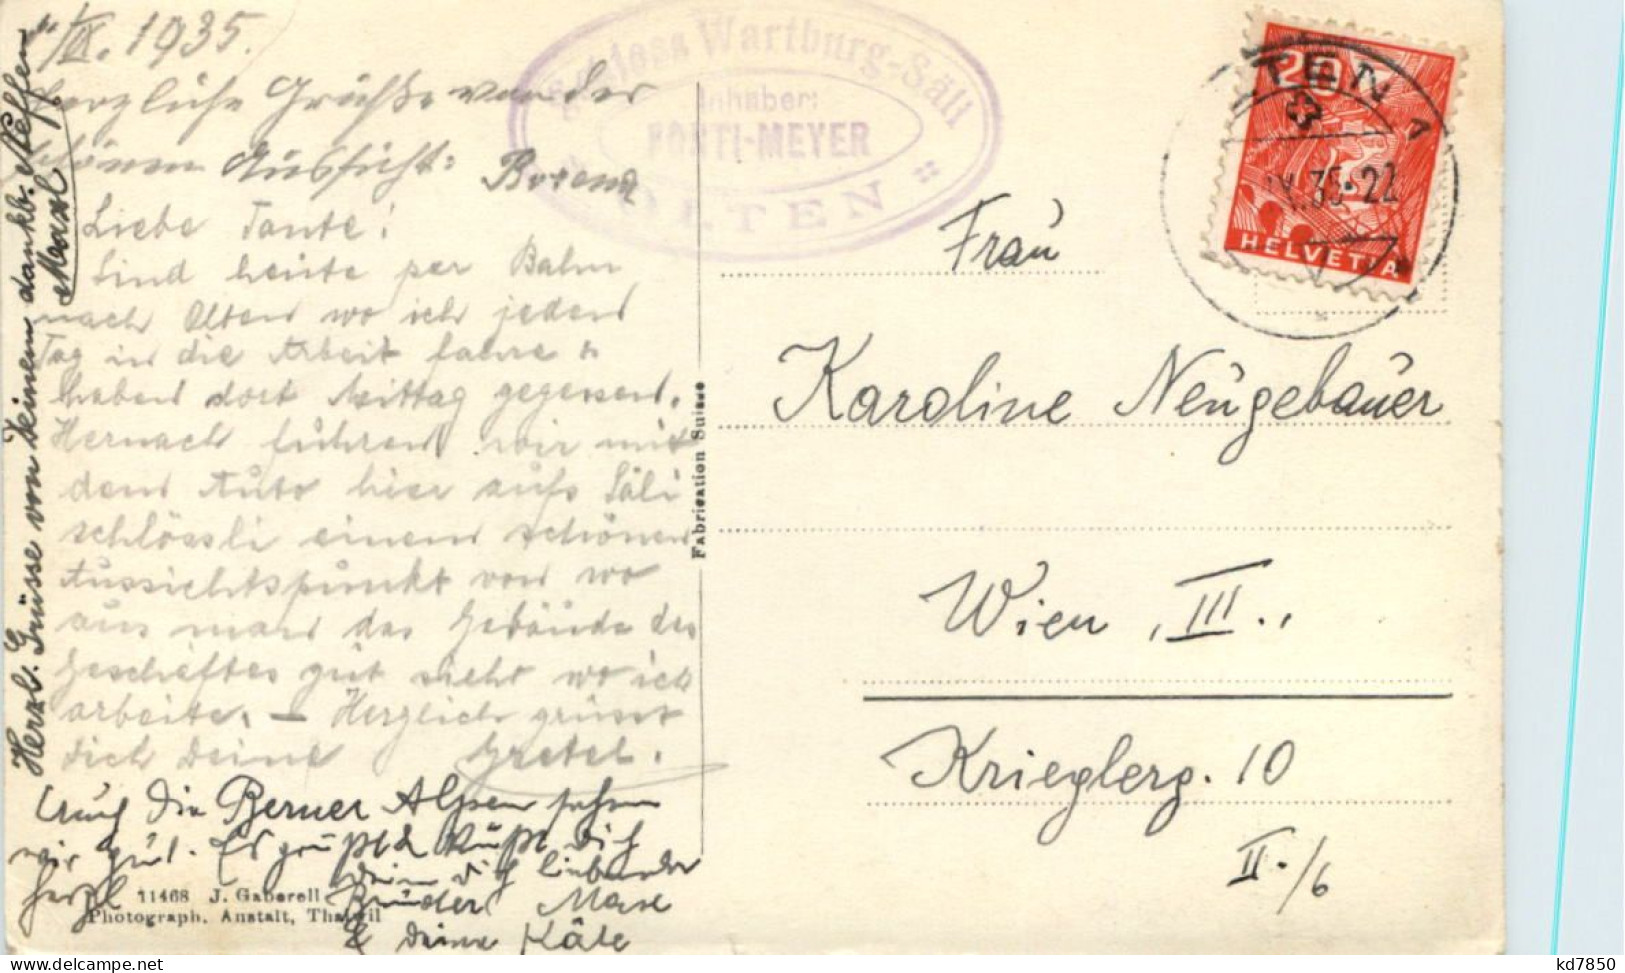 1/IX. 1935.
Herzliche Grüße von der
schönen Aussicht:
Liebe Tante!
Sind heute per Bahn
nach Olten wo ich jeden
Tag in die Arbeit fahre &
haben dort Mittag gegessen.
Hernach führen wir mit
dem Auto hier aufs Säli
schlössli einem schönen
Aussichtspunkt von wo
aus man das Gebäude des
Geschäftes gut sieht wo ich
arbeite. – Herzlich grüsst
dich deine Gretel.
Auch die Berner Alpen sehen
wir gut. Es grüßt & küßt dich
herzl. dein dich liebender
Bruder Max
& deine Käte
Herzl. Grüsse von deinem dankb. Neffen
Maxl
Schloss Wartburg-Säli
Inhaber:
PORTI-MEYER
OLTEN
20
HELVETIA
OLTEN
IX.35-22
Frau
Karoline Neugebauer
Wien, III.,
Krieglerg. 10
II./6
Fabrication Suisse
11468 J. Gaberell
Photograph. Anstalt, Thalwil
kd7850